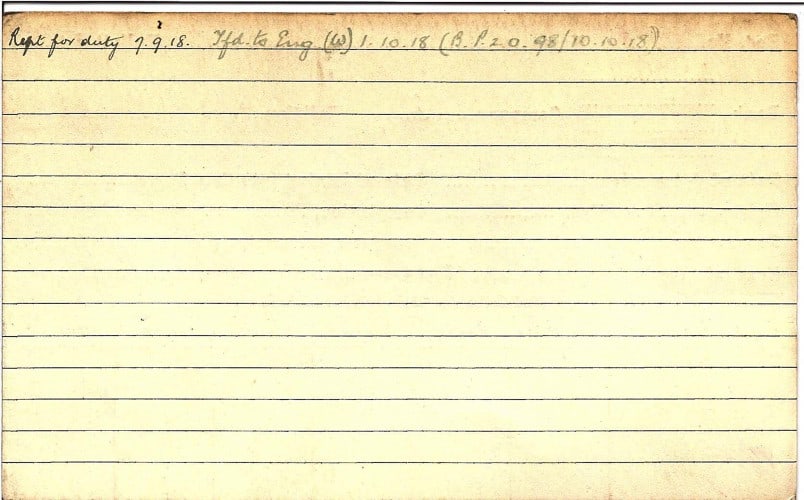 Rept for duty 7.9.18. Tfd. to Eng (W) 1.10.18 (B.P.2.0. 98/10.10.18)